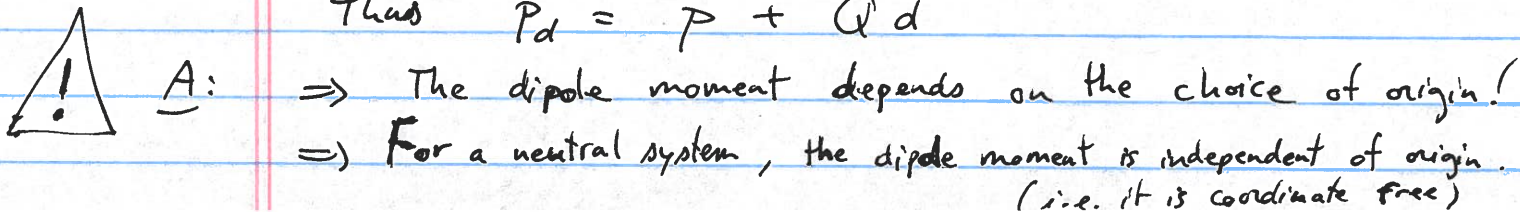 Thus Pd = P + Qd
! A: => The dipole moment depends on the choice of origin!
=> For a neutral system, the dipole moment is independent of origin.
(i.e. it is coordinate free)